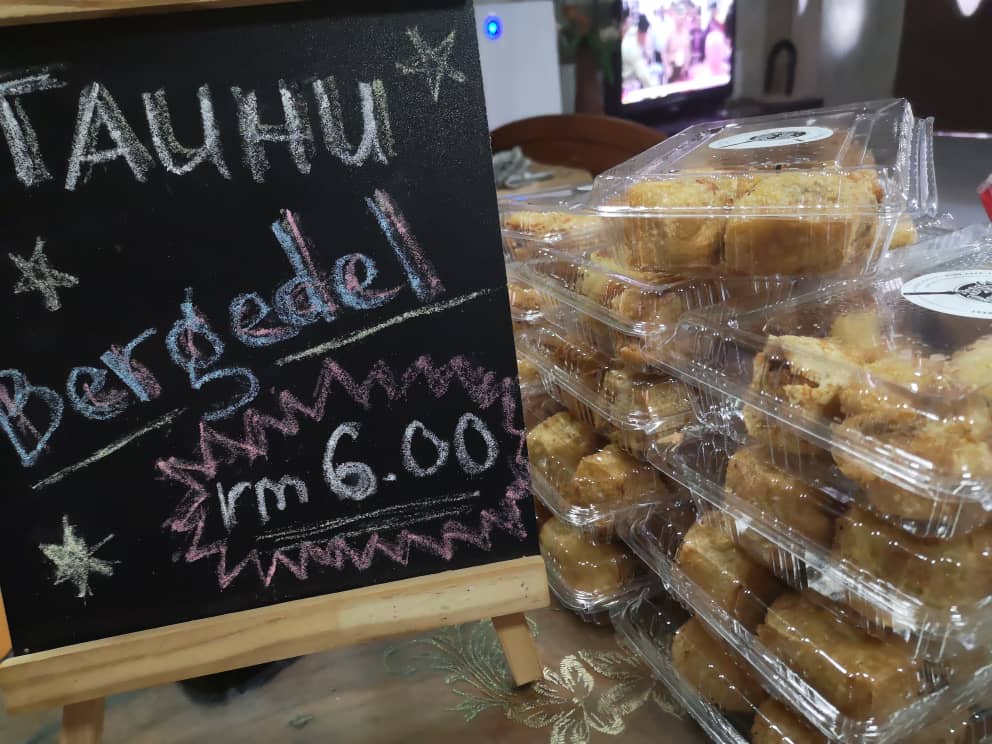 TAUHU
Bergedel
rm 6.00